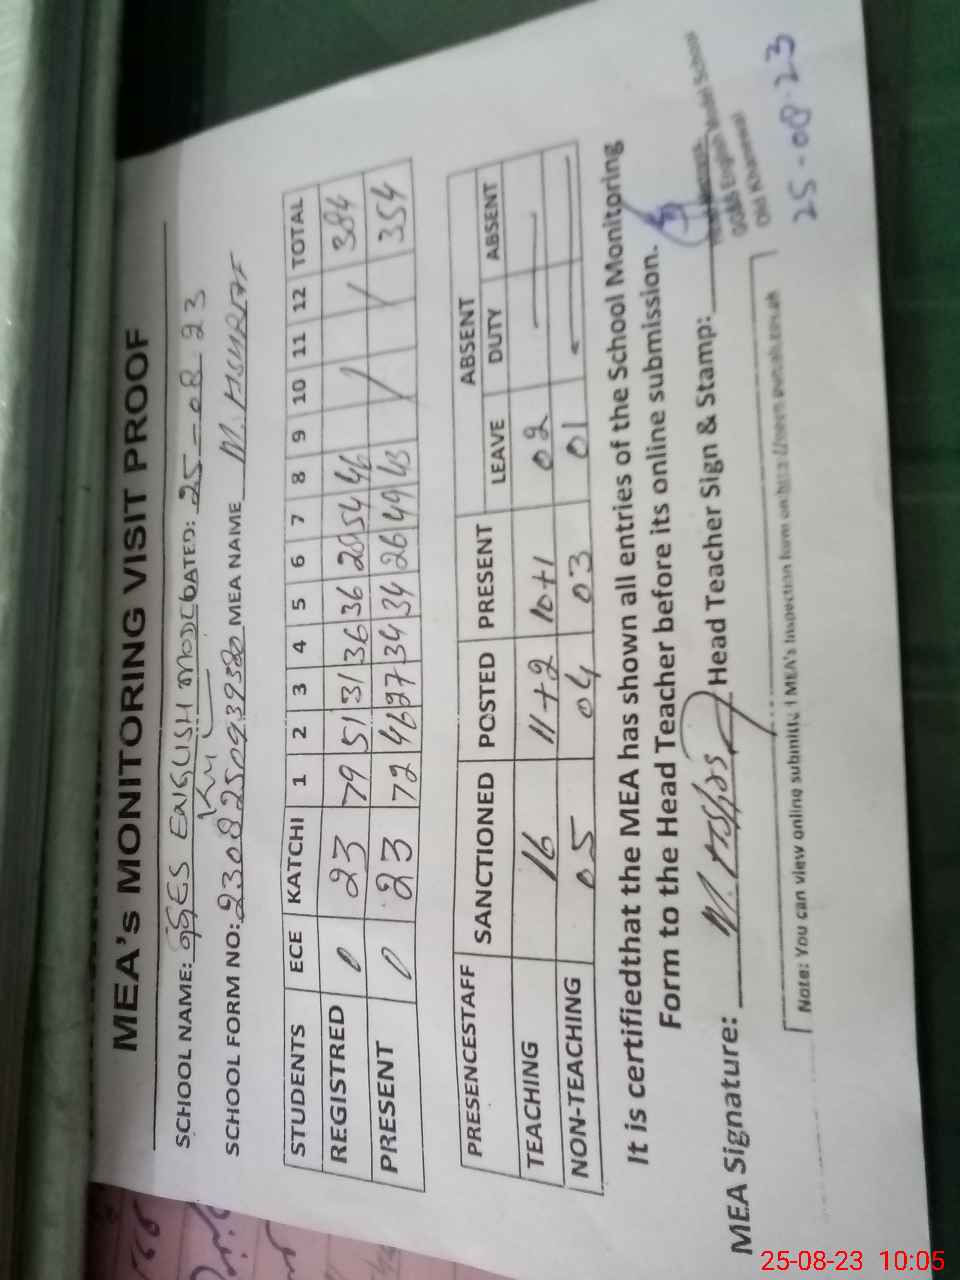 MEA's MONITORING VISIT PROOF
SCHOOL NAME: GGES ENGLISH MODEL DATED: 25-08-23
KWL
SCHOOL FORM NO: 230825093958 MEA NAME M. ASHRAF
STUDENTS ECE KATCHI 1 2 3 4 5 6 7 8 9 10 11 12 TOTAL
REGISTRED 0 23 79 51 31 36 36 28 54 46 / 384
PRESENT 0 23 72 46 27 34 34 26 49 43 / / 354
PRESENCESTAFF SANCTIONED POSTED PRESENT ABSENT
LEAVE DUTY ABSENT
TEACHING 16 11+2 10+1 02 —
NON-TEACHING 05 04 03 01 - —
It is certifiedthat the MEA has shown all entries of the School Monitoring
Form to the Head Teacher before its online submission.
MEA Signature: M. Ashraf Head Teacher Sign & Stamp:
English Model School
Old Khanewal
25-08-23
Note: You can view online submitted MEA's Inspection form on
25-08-23 10:05